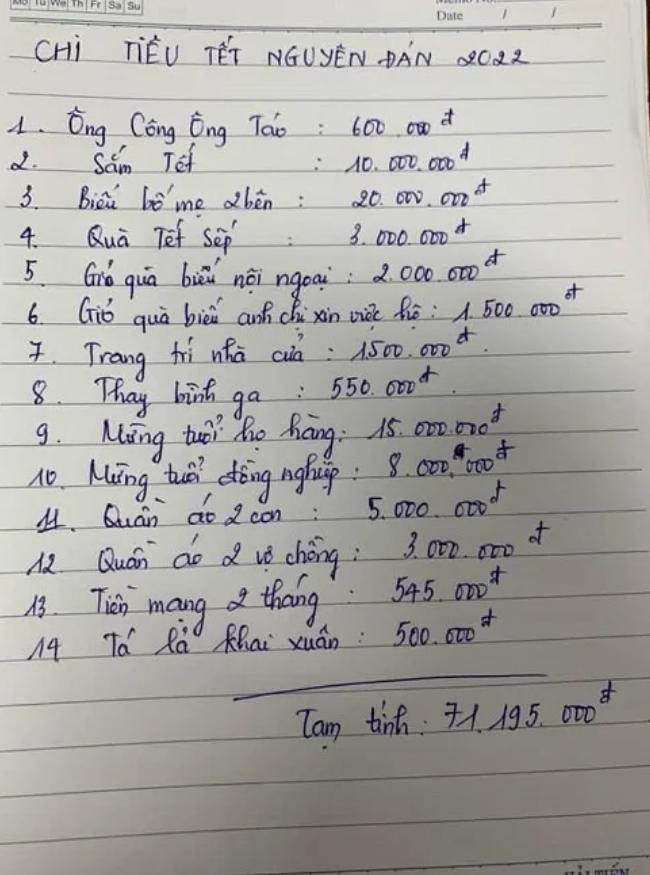 Mo Tu We Th Fr Sa Su
Date / /
CHI TIÊU TẾT NGUYÊN ĐÁN 2022
1. Ông Công Ông Táo : 600.000đ
2. Sắm Tết : 10.000.000đ
3. Biếu bố mẹ 2 bên : 20.000.000đ
4. Quà Tết Sếp : 3.000.000đ
5. Giỏ quà biếu nội ngoại : 2.000.000đ
6. Giỏ quà biếu anh chị xin việc hộ : 1.500.000đ
7. Trang trí nhà cửa : 1500.000đ.
8. Thay bình ga : 550.000đ.
9. Mừng tuổi họ hàng : 15.000.000đ
10. Mừng tuổi đồng nghiệp : 8.000.000đ
11. Quần áo 2 con : 5.000.000đ
12. Quần áo 2 vợ chồng : 3.000.000đ
13. Tiền mạng 2 tháng : 545.000đ
14 Tá lả khai xuân : 500.000đ
Tạm tính : 71.195.000đ
HẢI TIẾN